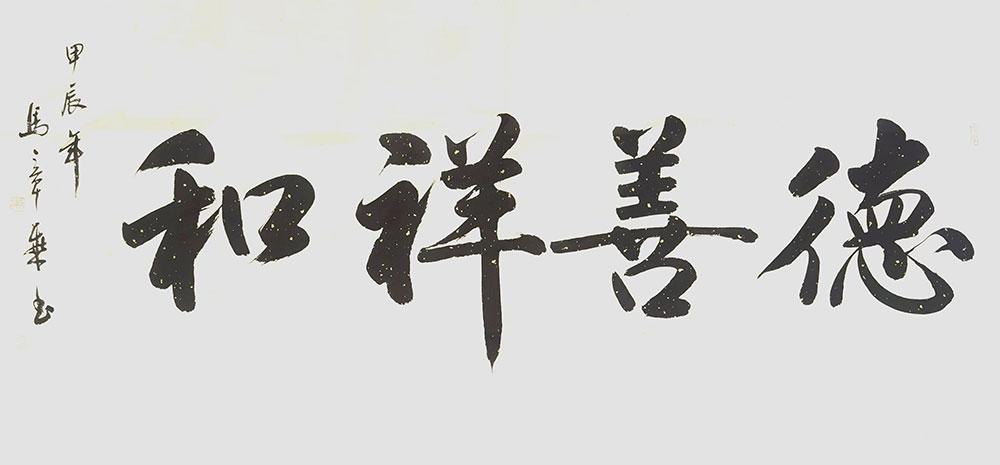 德善祥和
甲辰年
馬
書